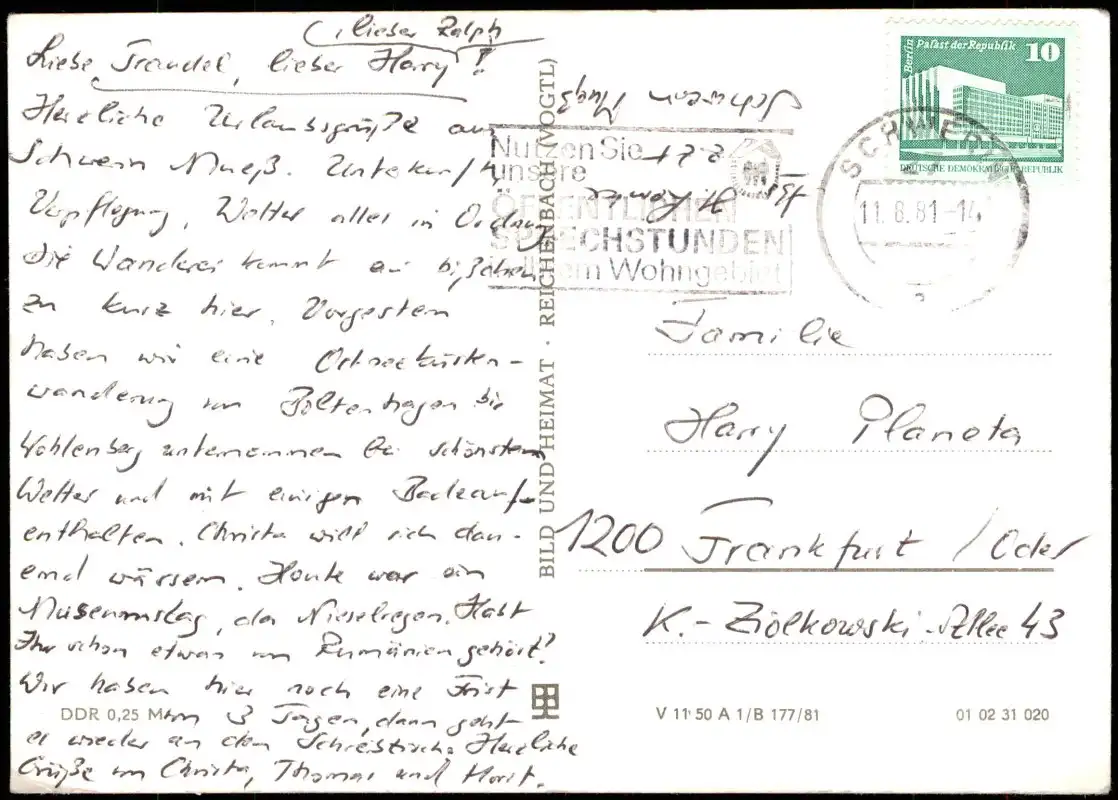 , lieber Ralph
Liebe Traudel, lieber Harry!
Herzliche Urlaubsgrüße aus
Schwerin Mueß. Unterkunft
Verpflegung, Wetter alles in Ordnung
die Wanderei kommt ein bißchen
zu kurz hier. Vorgestern
haben wir eine Ostseeküsten-
wanderung von Boltenhagen bis
Wohlenberg unternommen bei schönstem
Wetter und mit einigen Badeauf-
enthalten. Christa will sich dau-
ernd wässern. Heute war ein
Museumstag, da Nieselregen. Habt
Ihr schon etwas von Rumänien gehört?
Wir haben hier noch eine Frist
von 3 Tagen, dann geht
es wieder an den Schreibtisch. Herzliche
Grüße von Christa, Thomas und Horst.
DDR 0,25 M
BILD UND HEIMAT · REICHENBACH (VOGTL)
Schwerin Mueß
Nutzen Sie
unsere
ÖFFENTLICHEN
SPRECHSTUNDEN
im Wohngebiet
Berlin Palast der Republik 10
DEUTSCHE DEMOKRATISCHE REPUBLIK
SCHWERIN
11.8.81-14
Familie
Harry Planeta
1200 Frankfurt/Oder
K.-Ziolkowski-Allee 43
V 11 50 A 1/B 177/81
01 02 31 020